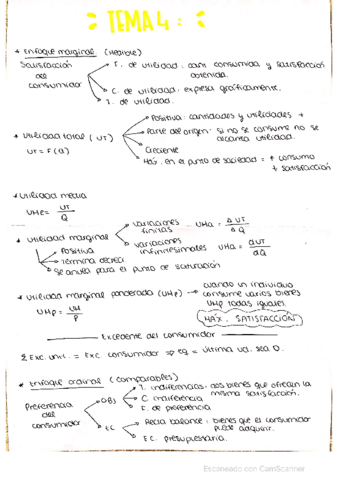 TEMA 4 :
* Enfoque marginal (Medible)
Satisfacción del consumidor
T. de utilidad: cant consumida y satisfacción obtenida.
C. de utilidad: expresa gráficamente.
I. de utilidad.
* Utilidad total (UT)
UT = F(Q)
Positiva: cantidades y utilidades +
Parte del origen: si no se consume no se alcanza utilidad.
Creciente
Máx. en el punto de saciedad = + consumo + satisfacción
* Utilidad media
UMe = UT / Q
* Utilidad marginal
variaciones finitas UMa = Δ UT / Δ Q
variaciones infinitesimales UMa = dUT / dQ
Positiva
Término decreci
Se anula para el punto de saturación
* Utilidad marginal ponderada (UMp)
UMp = UM / P
cuando un individuo consume varios bienes UMp todas iguales.
MÁX. SATISFACCIÓN
Excedente del consumidor
Σ Exc. uni. = Exc. consumidor ⇒ eq = última ud. sea 0.
* Enfoque ordinal (comparables)
Preferencia del consumidor
OBJ
I. indiferencias: dos bienes que ofrecen la misma satisfacción.
C. indiferencia
F. de preferencia
FC
Recta balance: bienes que el consumidor puede adquirir.
F.C. presupuestaria.
Escaneado con CamScanner